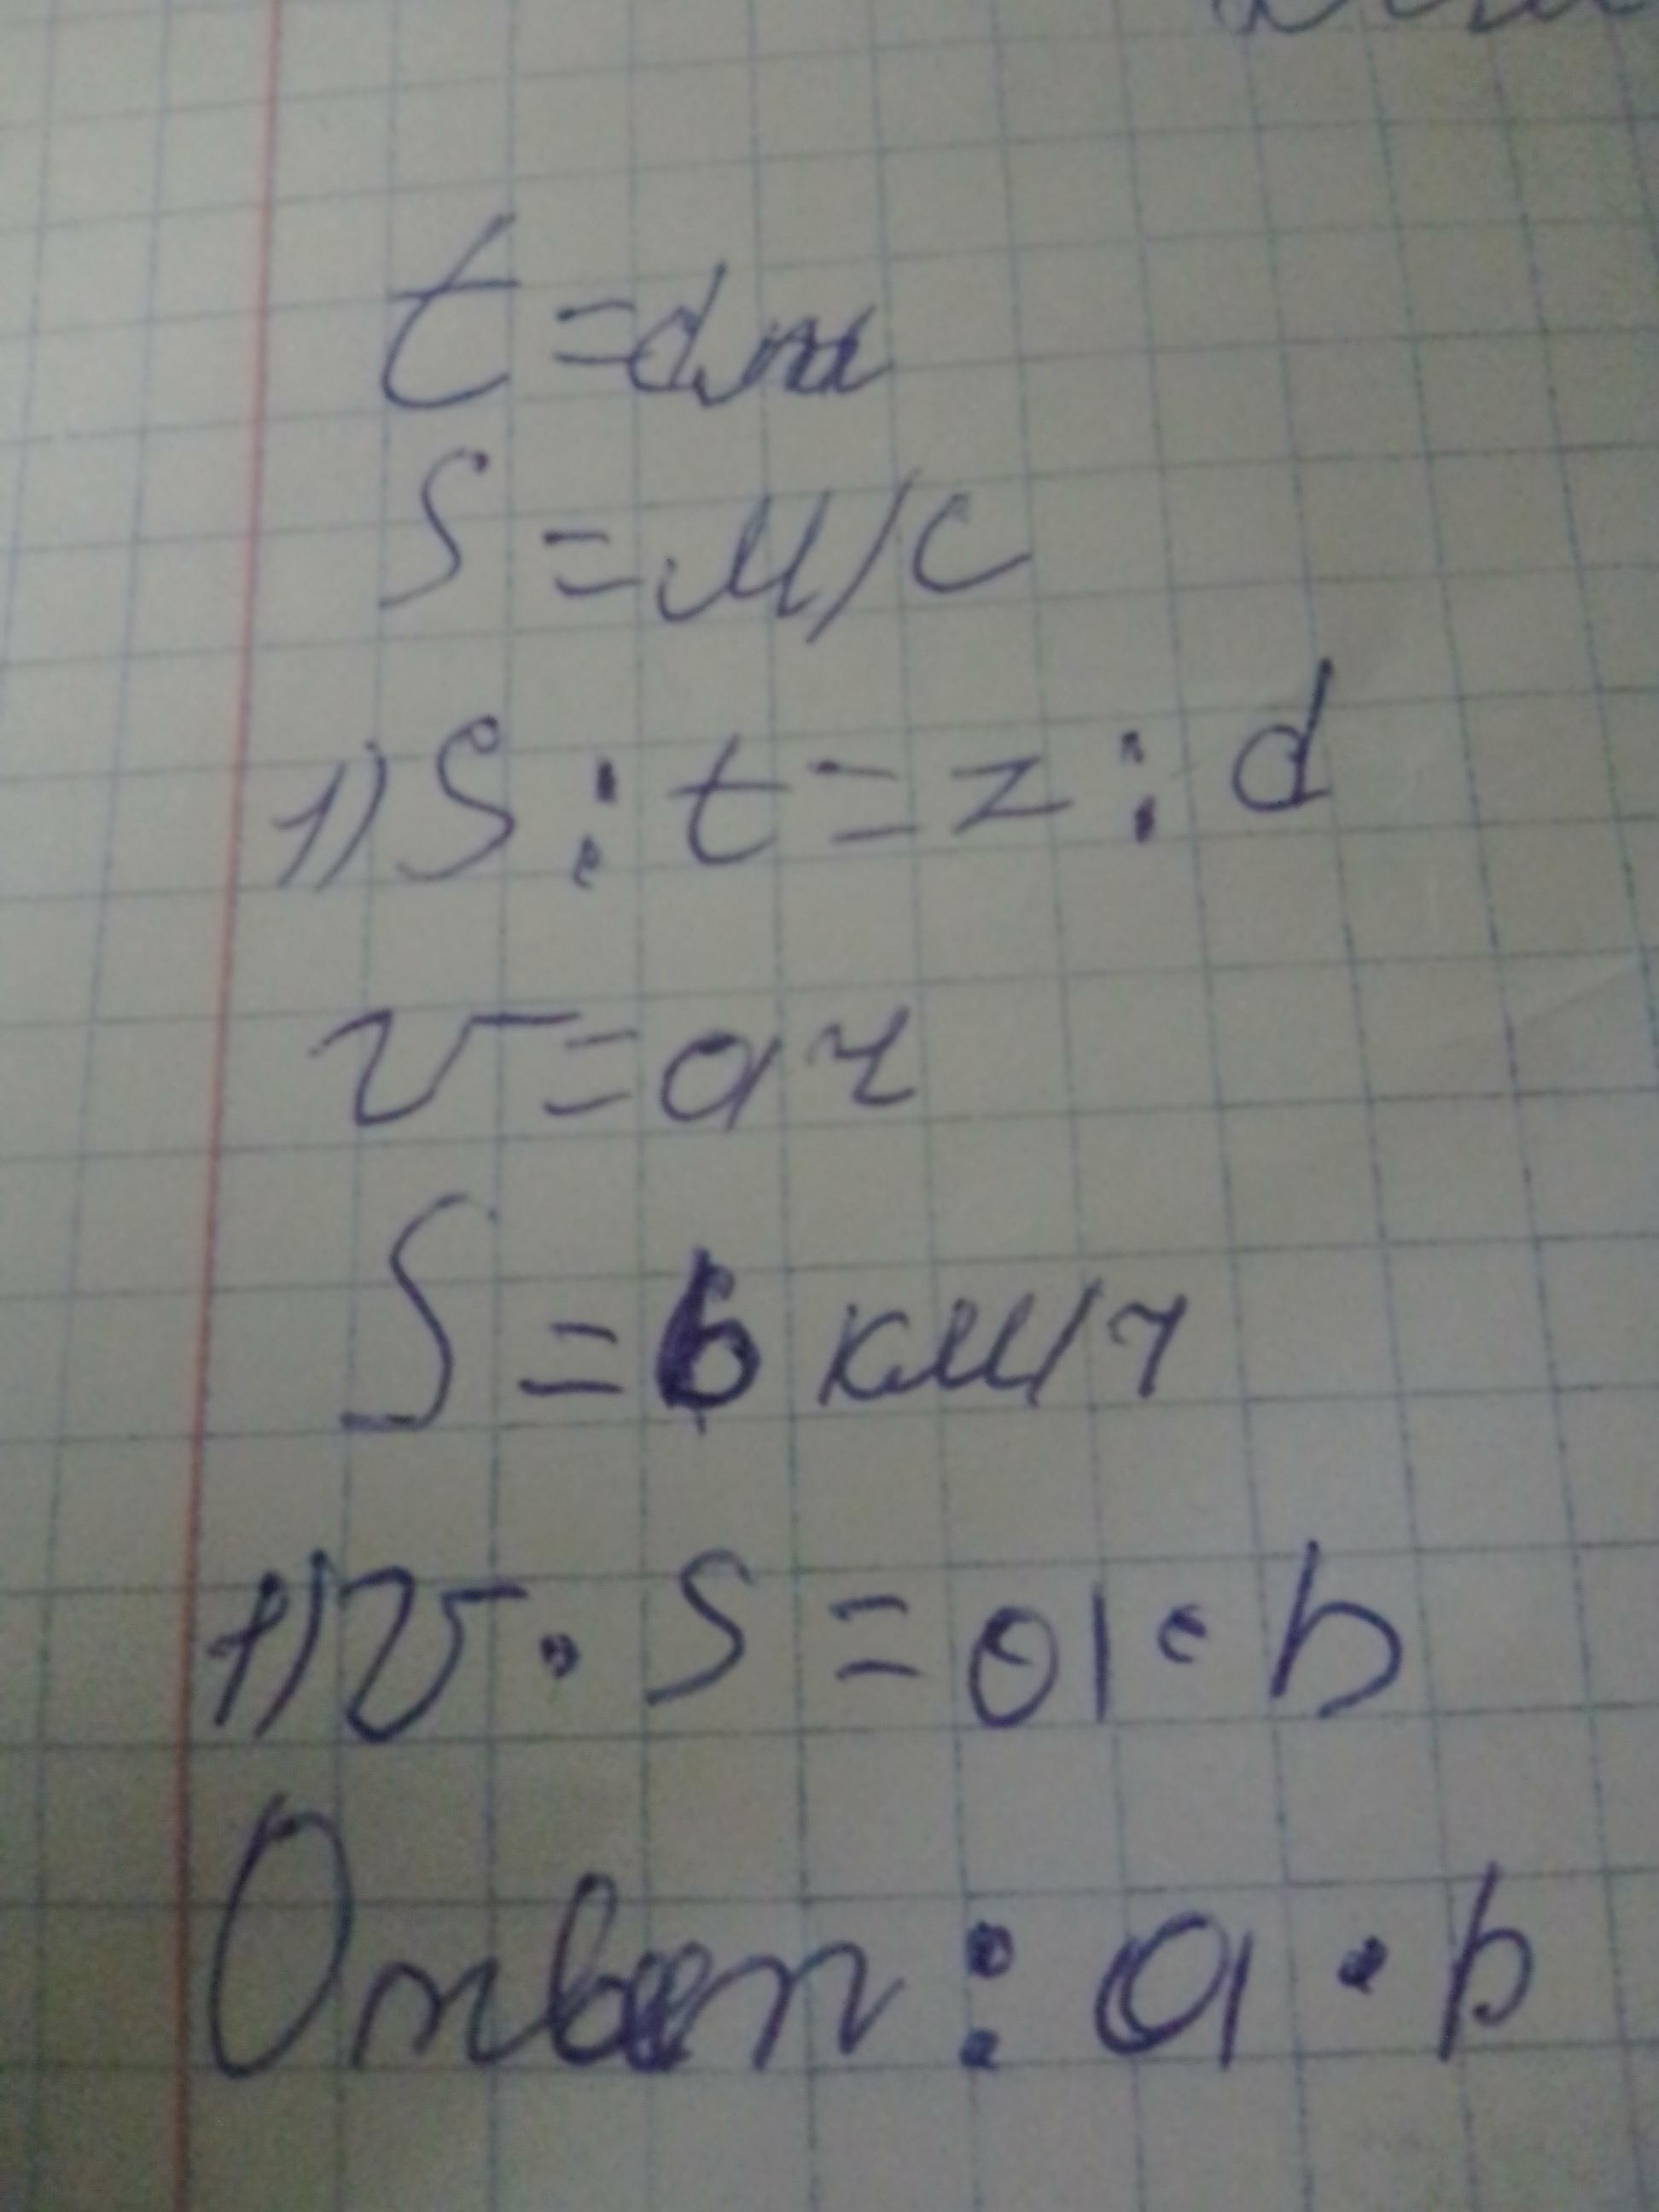 t = d м
S = м/с
1) S : t = z : d
v = a ч
S = b км/ч
1) v · S = a · b
Ответ : a · b